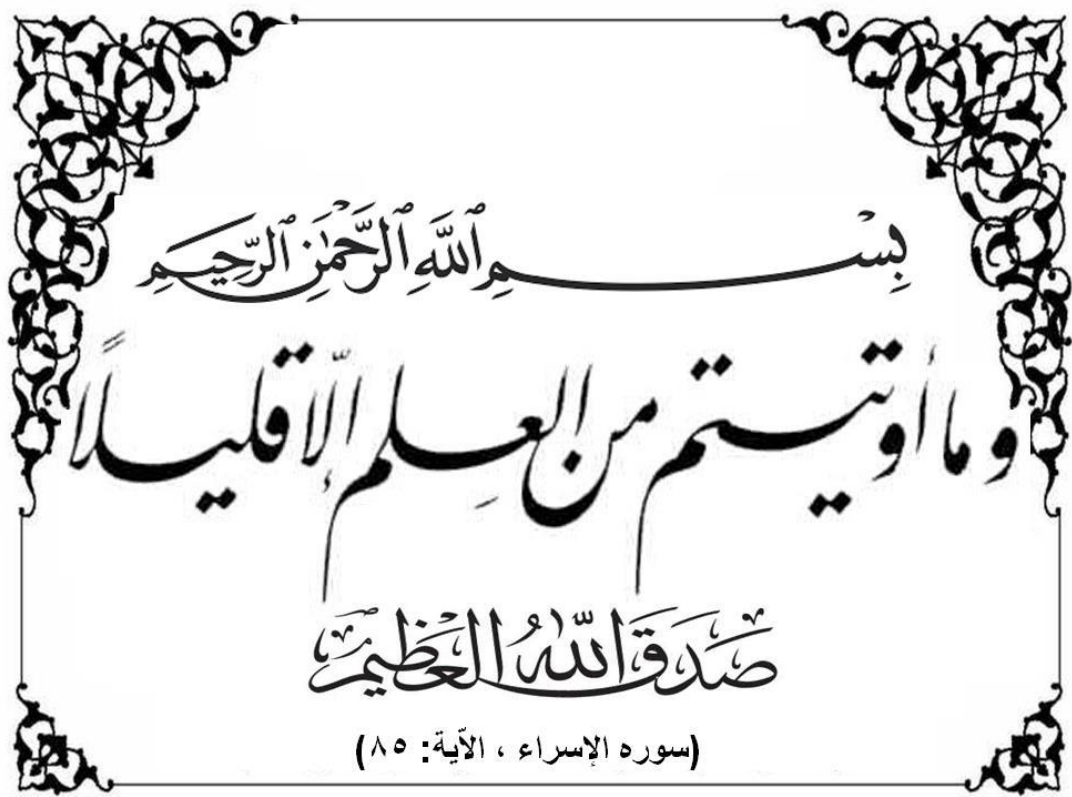 بِسْمِ ٱللَّهِ ٱلرَّحْمَٰنِ ٱلرَّحِيمِ
وما أوتيتم من العِلم إلّا قليلاً
صَدَقَ اللّٰهُ العَظيم
(سوره الإسراء ، الآية: ٨٥)